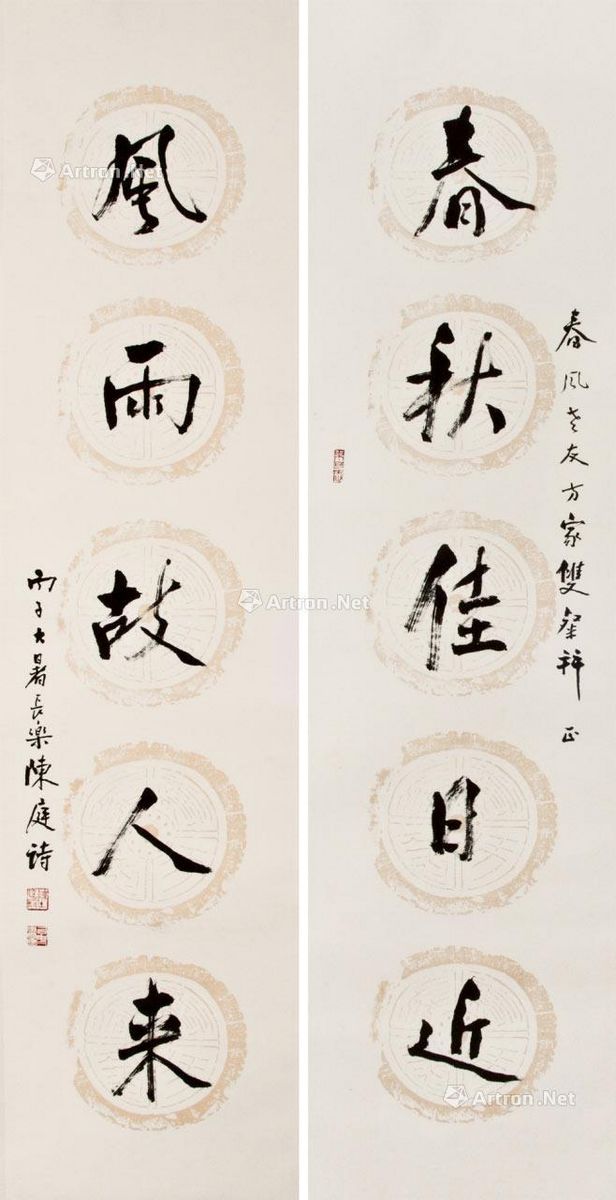 春風老友方家雙粲祥正
春秋佳日近
風雨故人來
丙子大暑長樂陳庭詩
Artron.Net
Artron.Net
Artron.Net